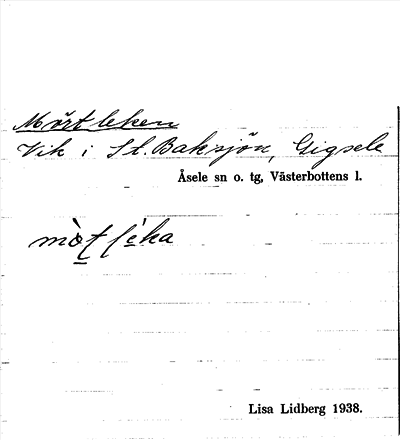 Mörtleken
Vik i St. Baksjön, Gigsele
Åsele sn o. tg, Västerbottens l.
Lisa Lidberg 1938.